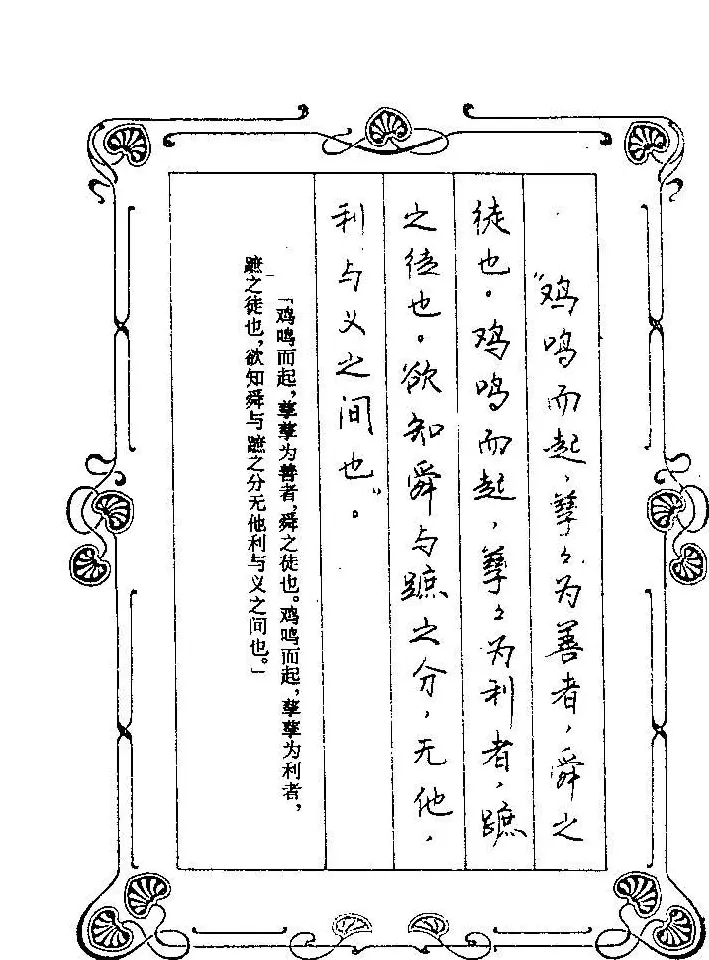 “鸡鸣而起，孳々为善者，舜之
徒也。鸡鸣而起，孳々为利者，蹠
之徒也。欲知舜与蹠之分，无他，
利与义之间也”。
「鸡鸣而起，孳孳为善者，舜之徒也。鸡鸣而起，孳孳为利者，
蹠之徒也，欲知舜与蹠之分无他利与义之间也。」